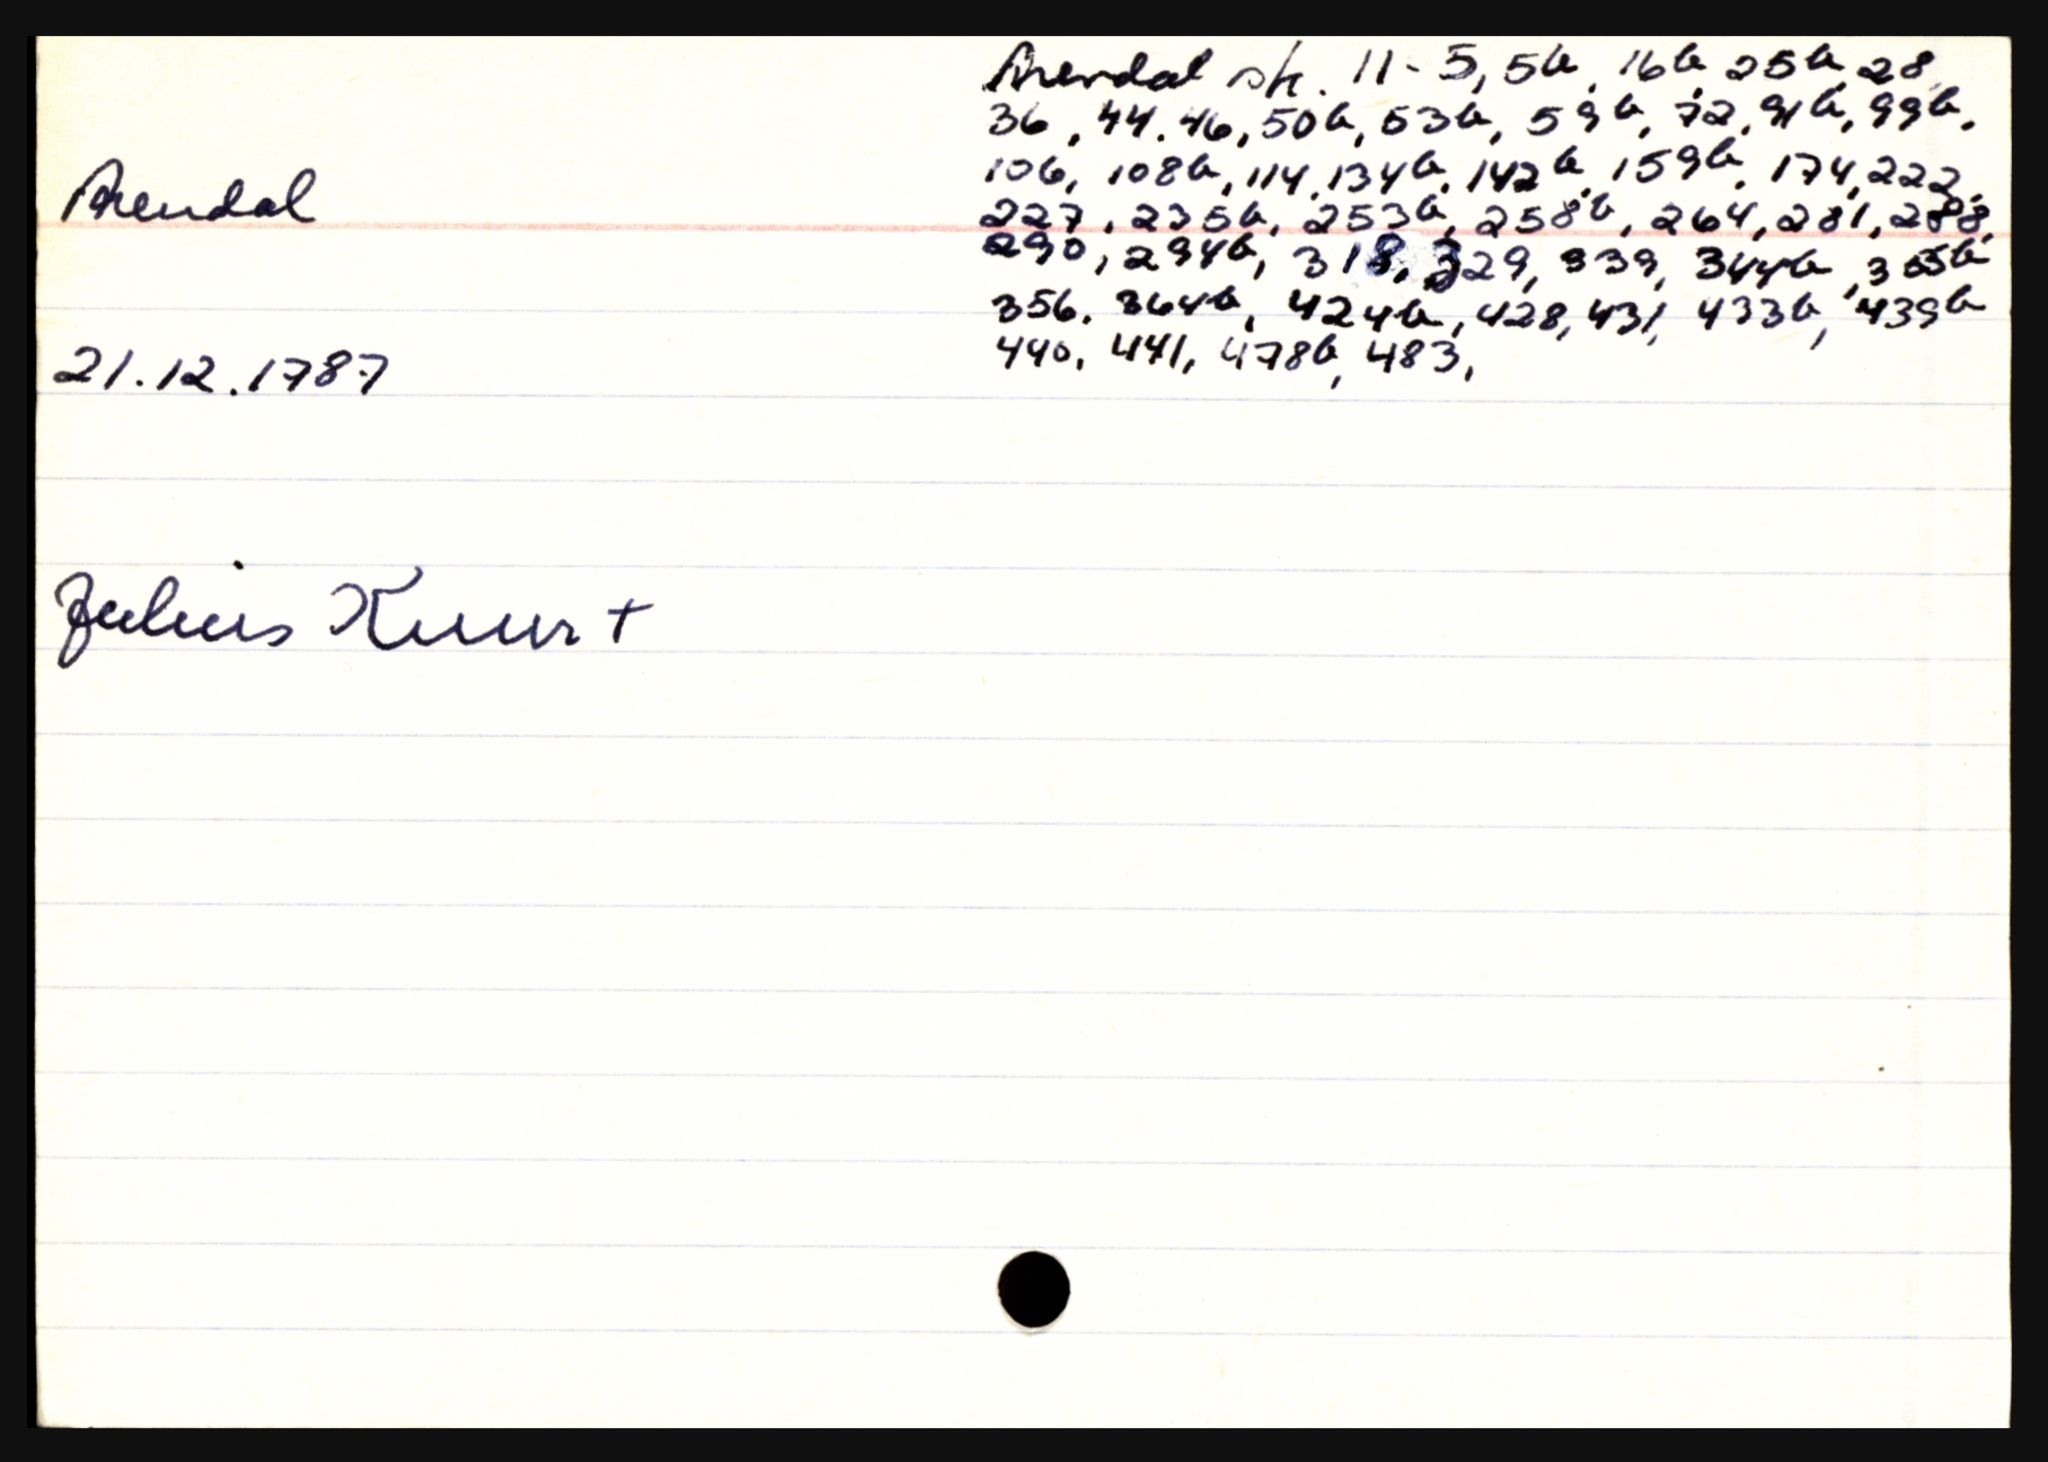 Arendal sk. 11-5, 5b, 16b, 25b, 28,
36, 44, 46, 50b, 53b, 59b, 72, 91b, 99b,
106, 108b, 114, 134b, 142b, 159b, 174, 222,
227, 235b, 253b, 258b, 264, 281, 288,
290, 294b, 318, 329, 339, 344b, 355b
356, 364b, 424b, 428, 431, 433b, 439b
440, 441, 478b, 483,
Arendal
21.12.1787
Julius Knurt